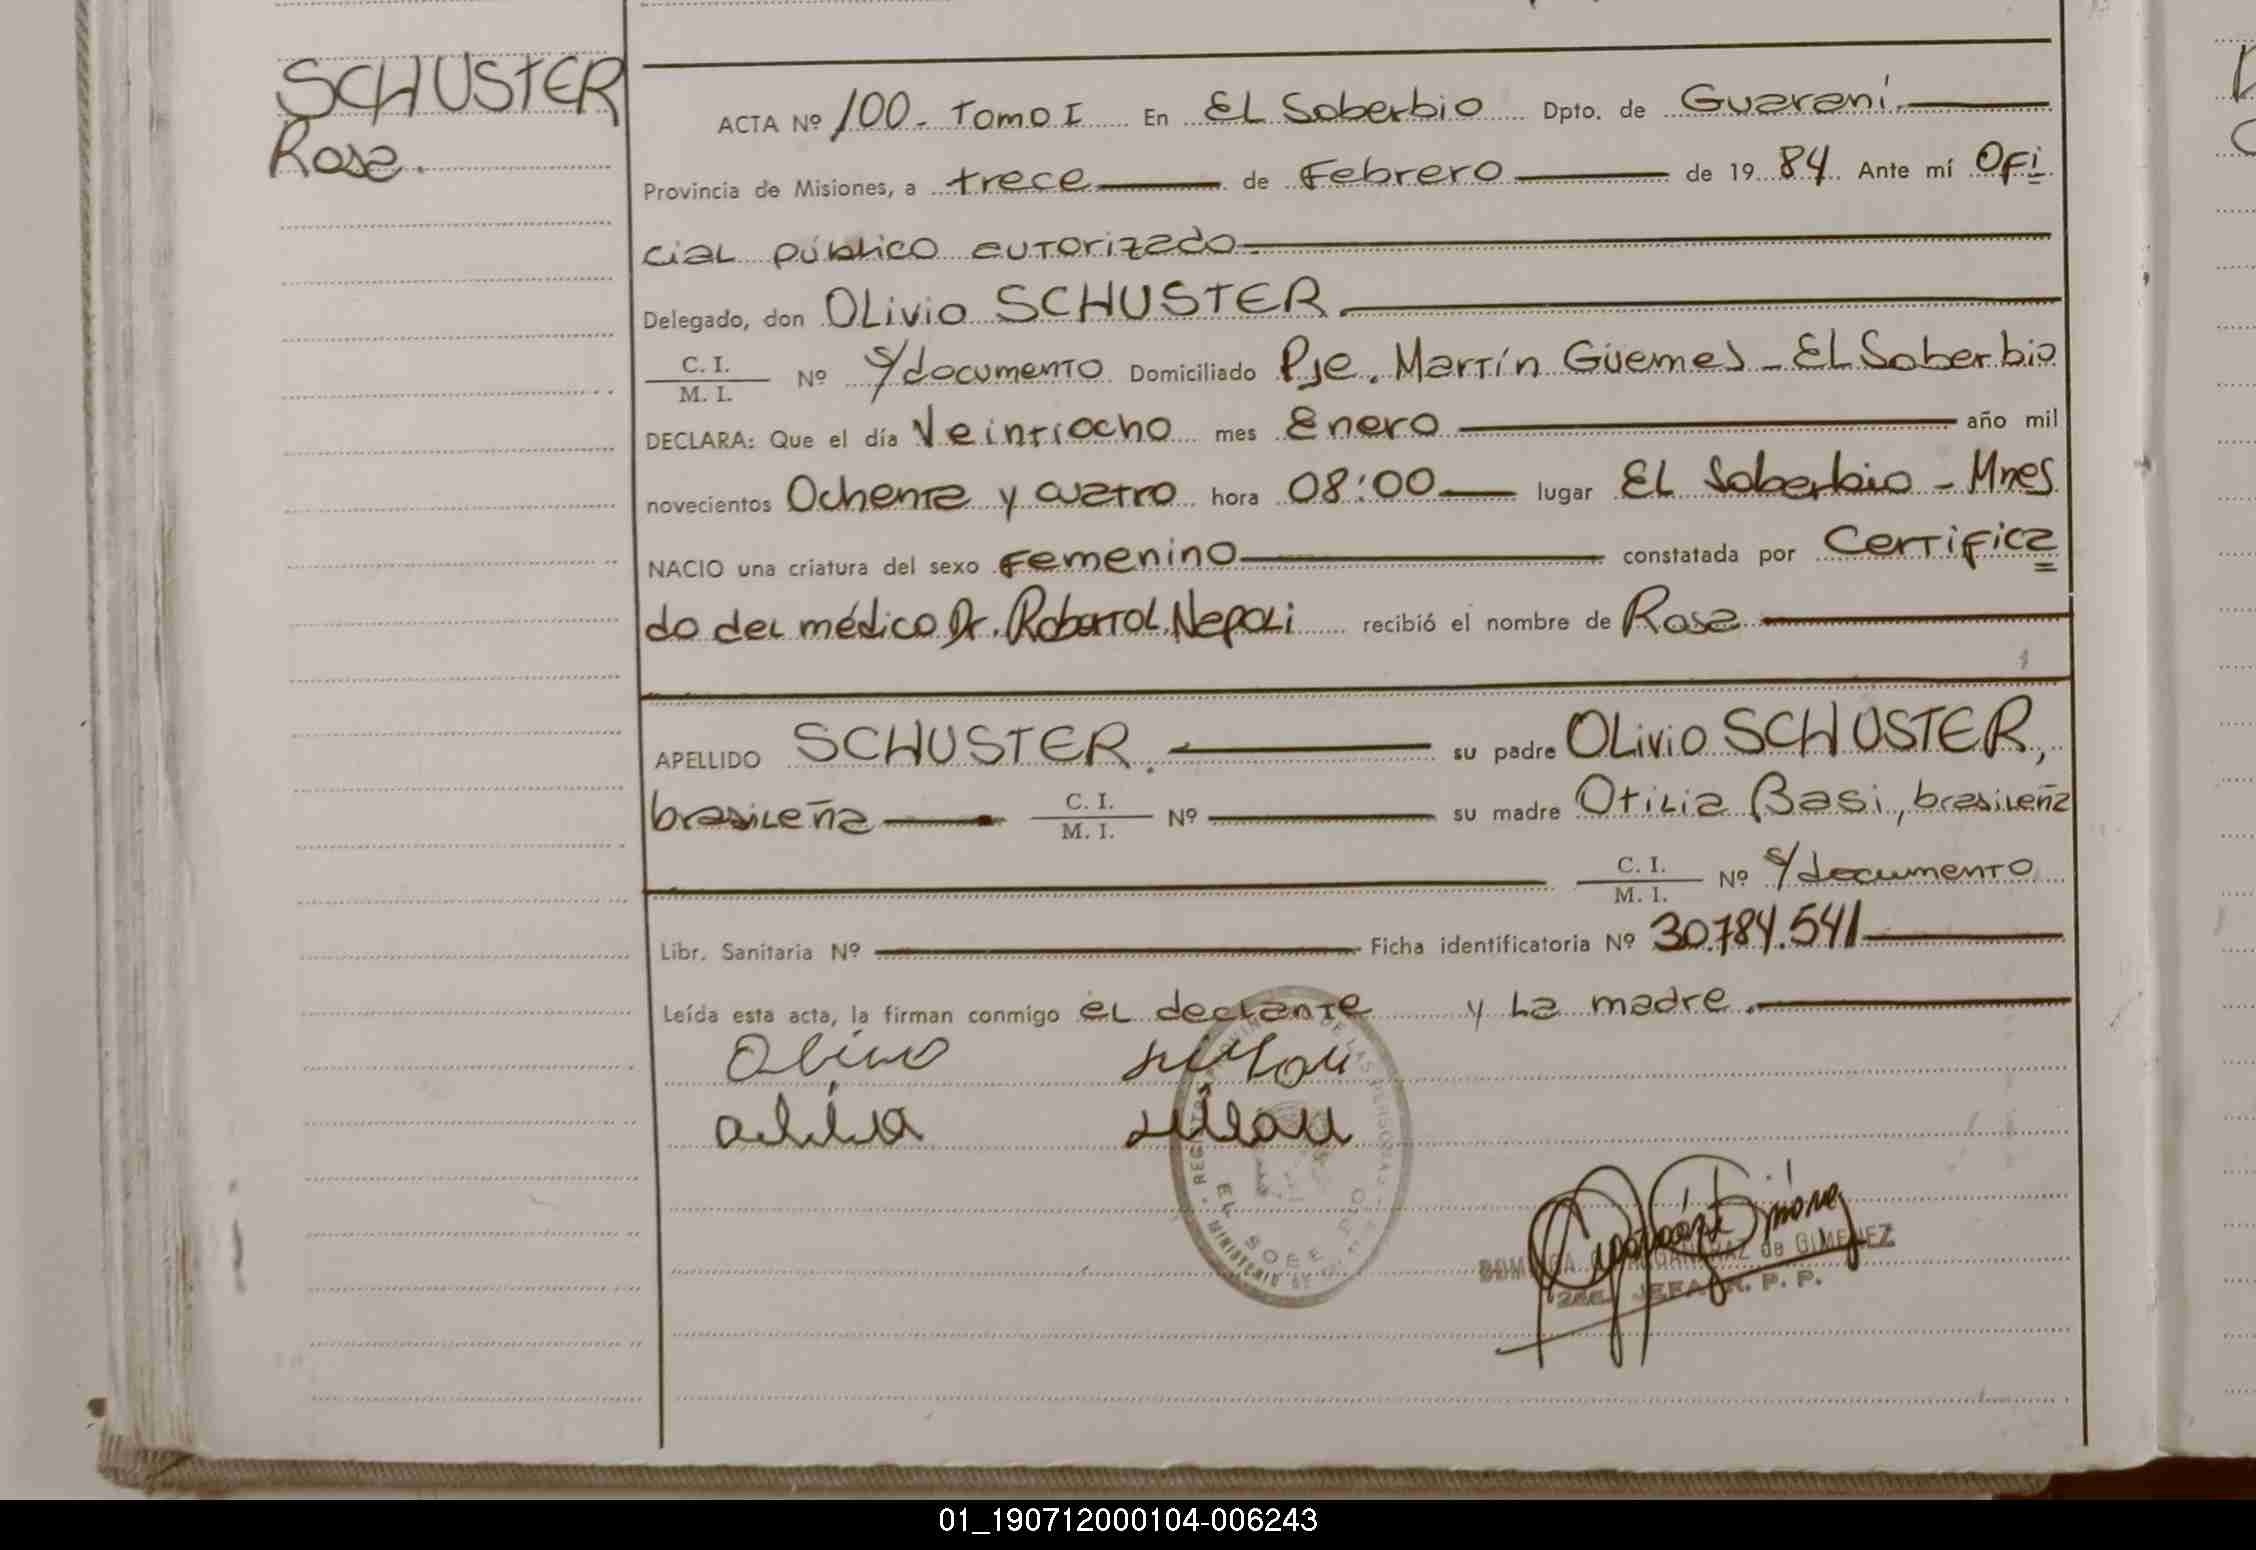 SCHUSTER
Rosa.
ACTA Nº 100. Tomo I En El Soberbio Dpto. de Guaraní.
Provincia de Misiones, a trece de Febrero de 1984 Ante mí Ofi
cial público autorizado
Delegado, don Olivio SCHUSTER
C. I.
M. I.
Nº s/documento Domiciliado Pje. Martín Güemes - El Soberbio
DECLARA: Que el día Veintiocho mes Enero año mil
novecientos Ochenta y cuatro hora 08:00 lugar El Soberbio - Mnes
NACIO una criatura del sexo Femenino constatada por Certifica
do del médico Dr. Roberto L. Nepoli recibió el nombre de Rosa
APELLIDO SCHUSTER. su padre Olivio SCHUSTER,
brasileña C. I. M. I. Nº su madre Otilia Basi, brasileña
C. I.
M. I.
Nº s/documento
Libr. Sanitaria Nº Ficha identificatoria Nº 30.784.541
Leída esta acta, la firman conmigo el declante y la madre.
de GIMENEZ
JEFA R. P. P.
01_190712000104-006243